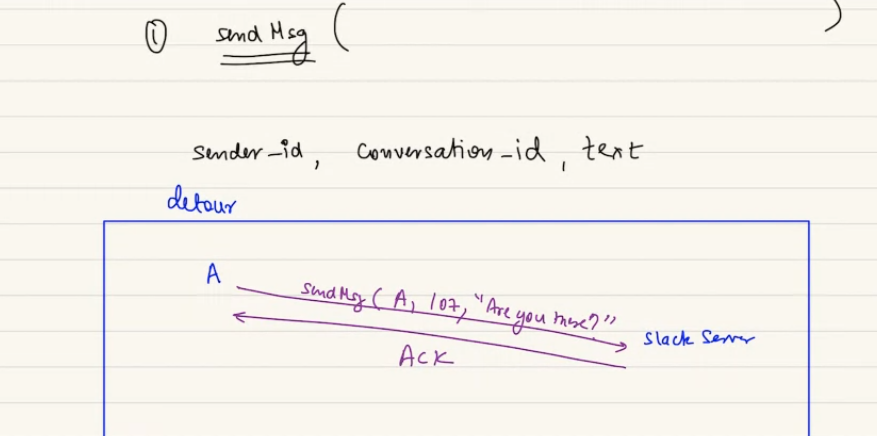 ① sendMsg ( )
sender_id, conversation_id, text
detour
A
sendMsg( A, 107, "Are you there?"
Slack Server
ACK